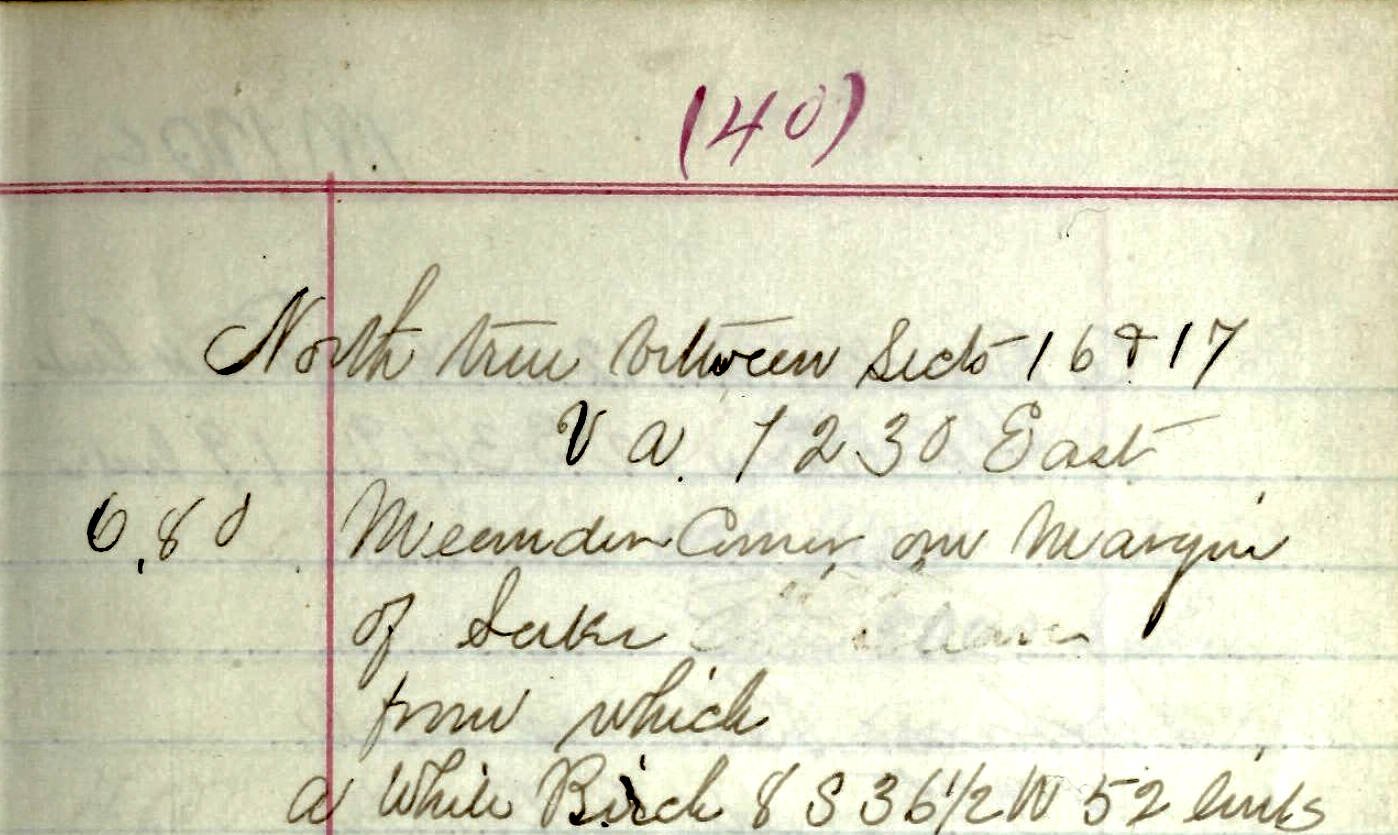 (40)
North true between Sects 16 & 17
Va. 7 2 30 East
6.80 Meander Corner on Margin
of Lake
from which
a White Birch 8 S 36 1/2 W 52 links